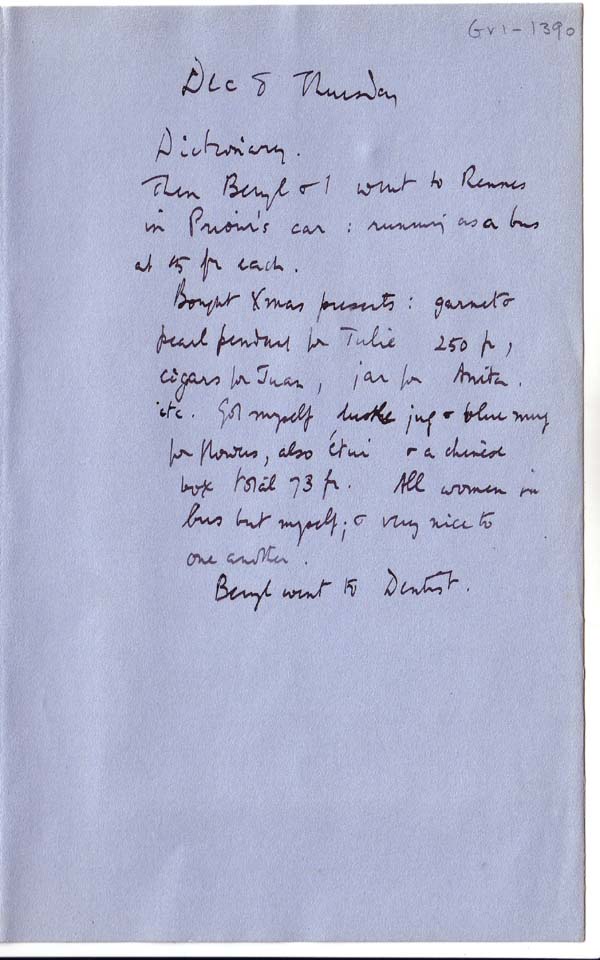 GV1-1390
Dec 8 Thursday
Dictionary.
Then Beryl & I went to Rennes
in Prioui's car: running as a bus
at 15 fr each.
Bought Xmas presents: garnet &
pearl pendant for Julie 250 fr,
cigars for Juan, jar for Anita.
etc. Got myself lustre jug & blue mug
for flowers, also étui & a chinese
box total 73 fr. All women in
bus but myself; & very nice to
one another.
Beryl went to Dentist.